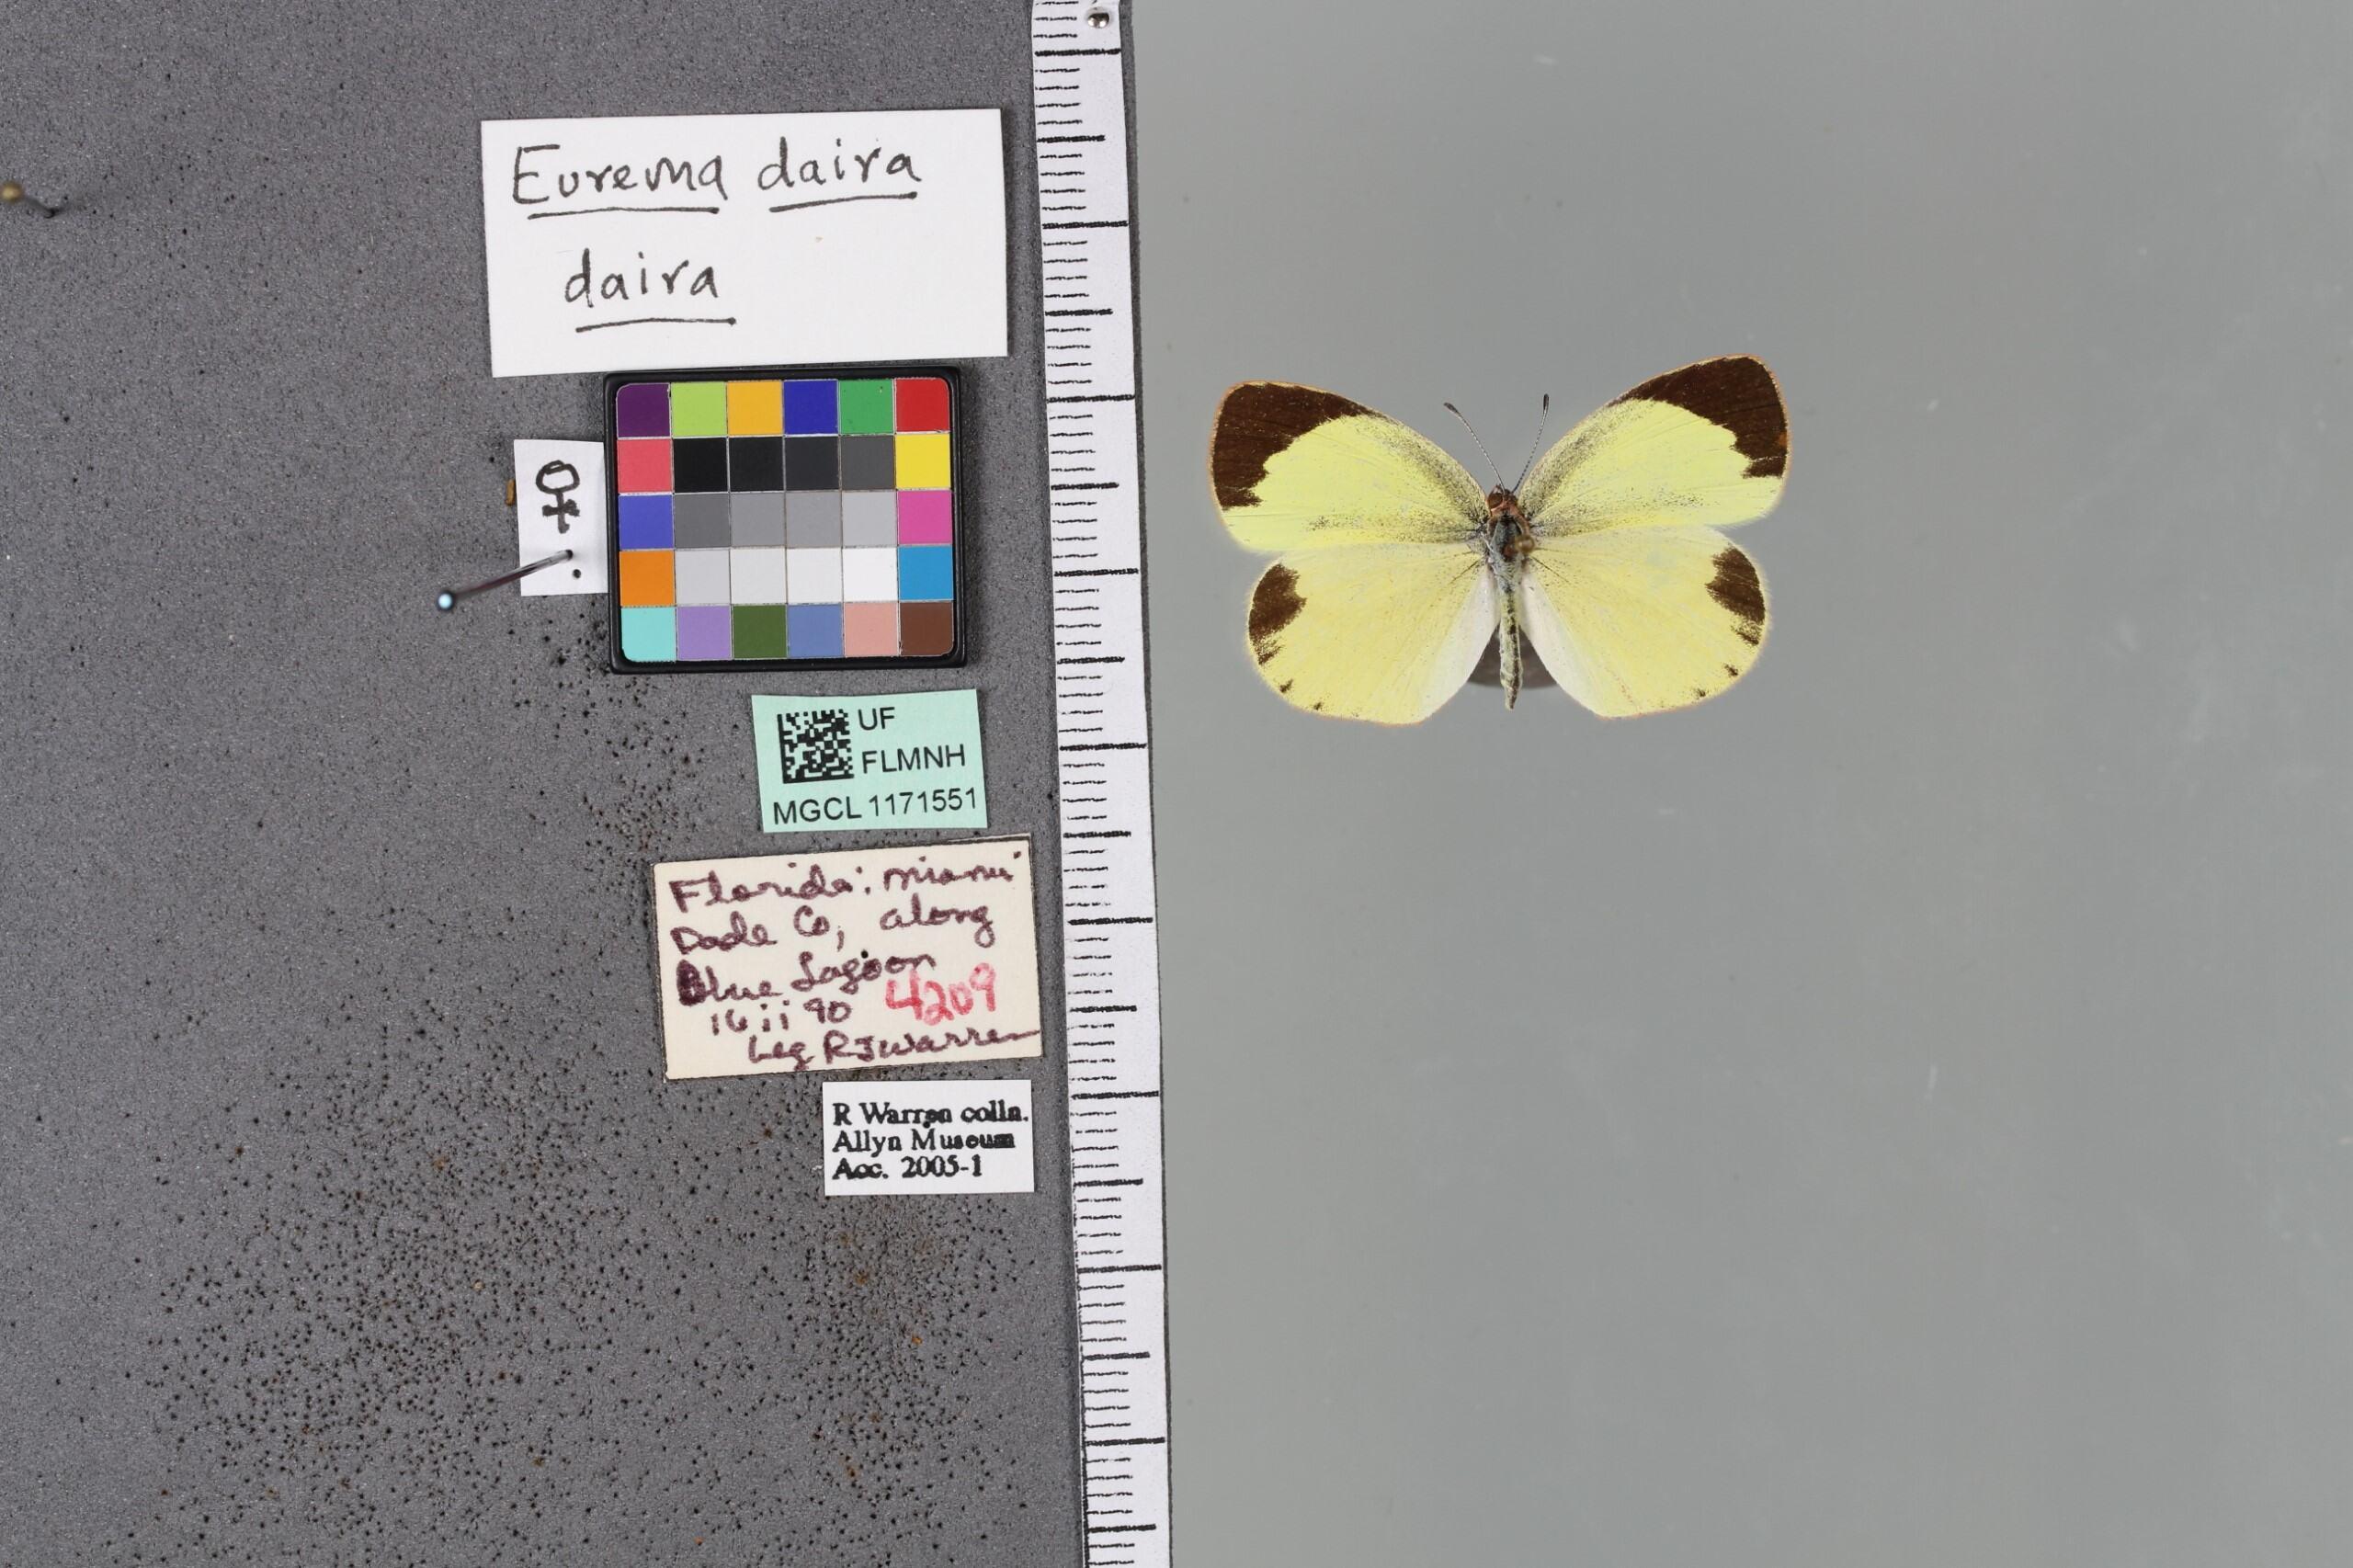 Eurema daira
daira
♀
UF
FLMNH
MGCL 1171551
Florida: Miami
Dade Co, along
Blue Lagoon
16 ii 90 4209
Leg RJ Warren
R Warren colln.
Allyn Museum
Acc. 2005-1